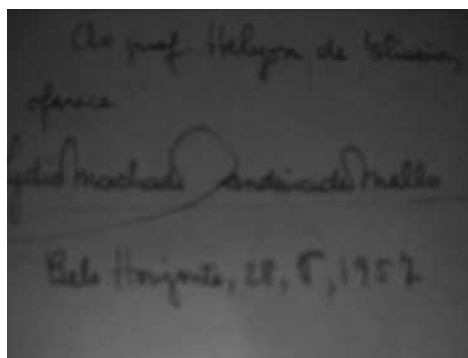 Ao prof. Helyon de Oliveira,
oferece
Lydio Machado Bandeira de Mello
Belo Horizonte, 28, 8, 1957